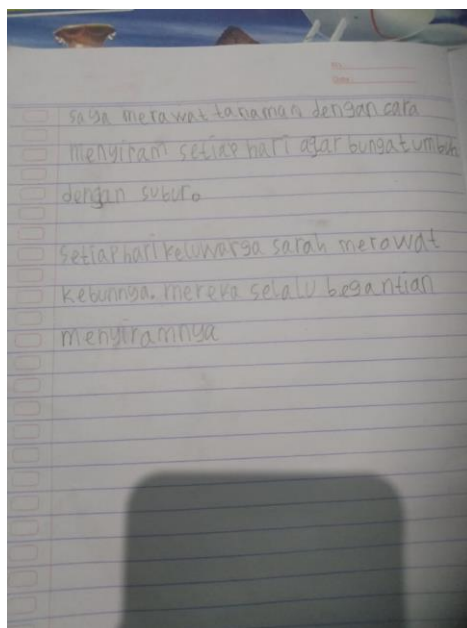 No.
Date.
saya merawat tanaman dengan cara
menyiram setiap hari agar bungatumbuh
dengan subur.
setiap hari keluwarga sarah merawat
kebunnya. mereka selalu begantian
menyiramnya